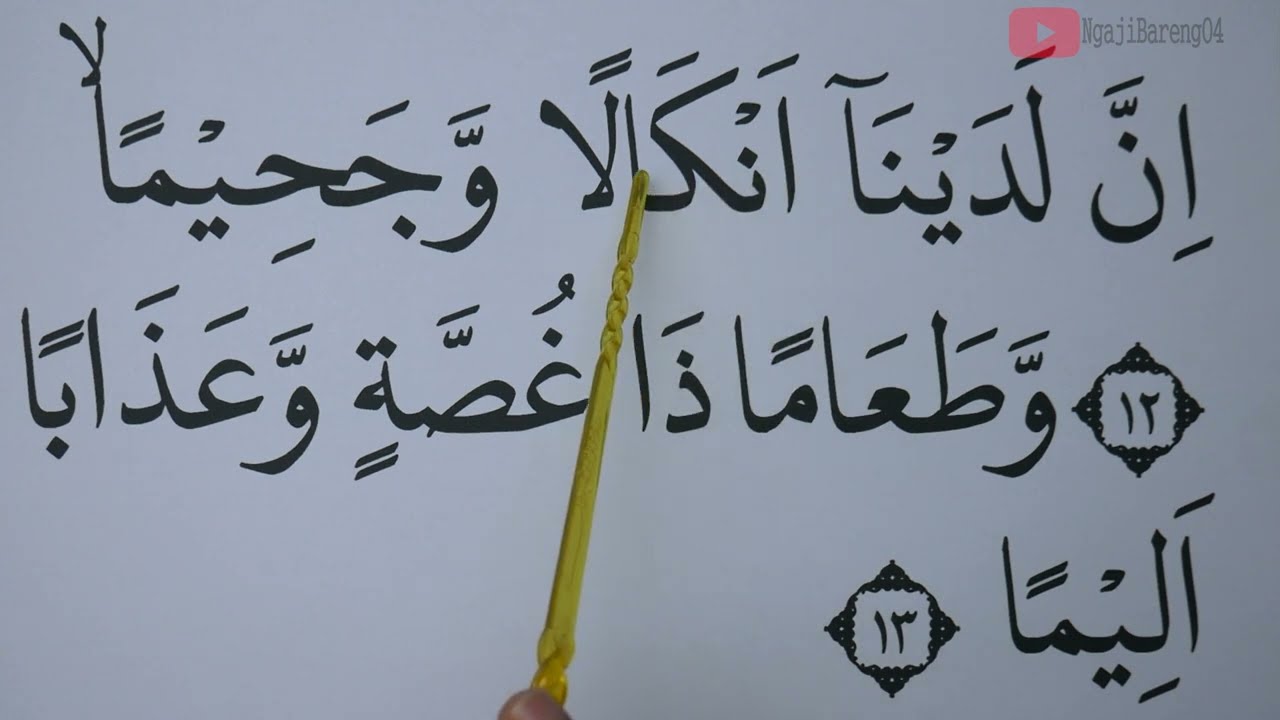 NgajiBareng04
اِنَّ لَدَيْنَآ اَنْكَالًا وَّجَحِيْمًاۙ
١٢ وَّطَعَامًا ذَا غُصَّةٍ وَّعَذَابًا
اَلِيْمًا ١٣